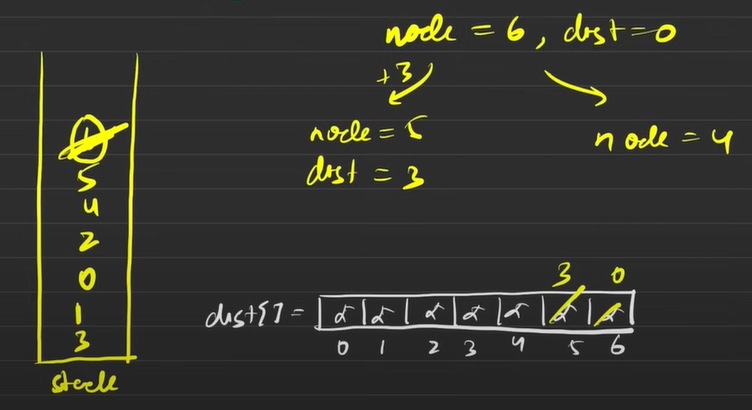 node = 6, dist=0
+3
node = 5
dist = 3
node = 4
5
4
2
0
1
3
stack
3 0
dist[] = ∞ ∞ ∞ ∞ ∞ ∞ ∞
0 1 2 3 4 5 6